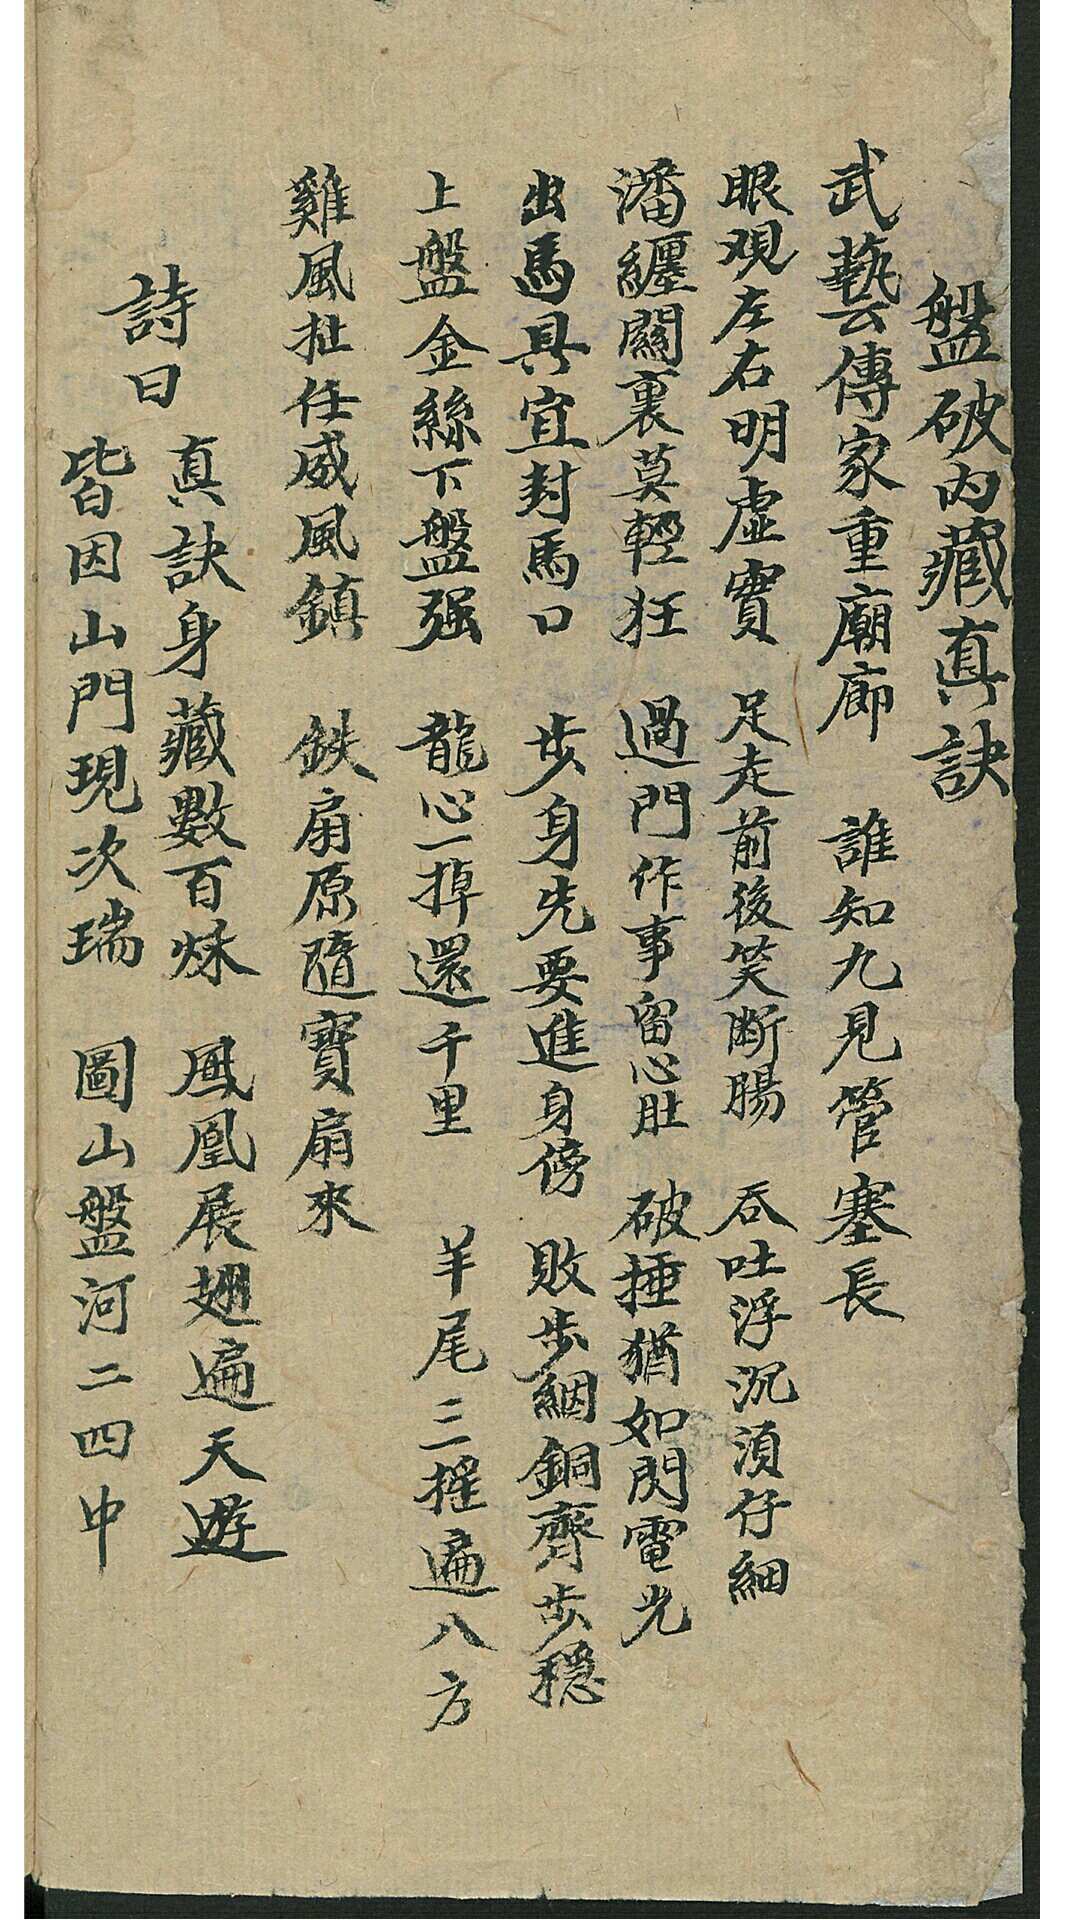 盤破內藏真訣
武藝傳家重廟廊　誰知九見管塞長
眼观左右明虛實　足走前後笑断腸　吞吐浮沉須仔細
潘纏關裏莫輕狂　過門作事留心肚　破捶猶如閃電光
出馬具宜封馬口　步身先要進身傍　敗步絪銅齊步穩
上盤金絲下盤强　龍心一掉還千里　羊尾三摇遍八方
雞風扯任威風鎮　鉄扇原隨寶扇來
詩曰
真訣身藏數百秌　鳳凰展翅遍天遊
皆因山門現次瑞　圖山盤河二四中